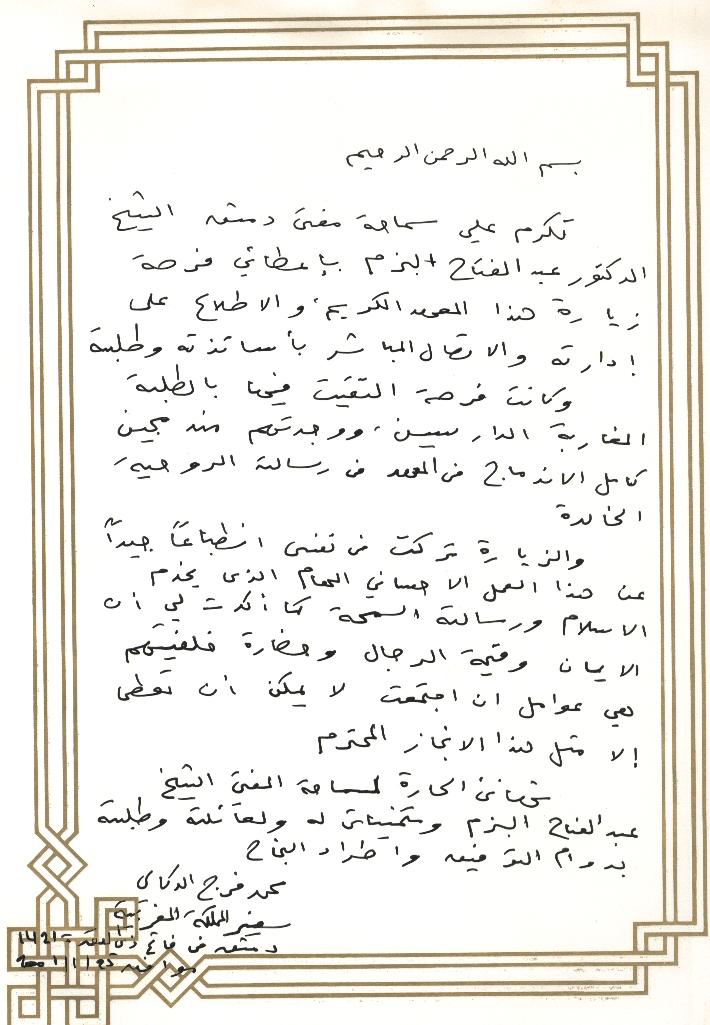 بسم الله الرحمن الرحيم
تكرم علي سماحة مفتي دمشق الشيخ
الدكتور عبد الفتاح البزم بإعطائي فرصة
زيارة هذا المعهد الكريم، والاطلاع على
إدارته والاتصال المباشر بأساتذته وطلبته
وكانت فرصة التقيت فيها بالطلبة
المغاربة الدارسين، ووجدتهم مندمجين
كامل الاندماج في المعهد في رسالته الروحية
الخالدة
والزيارة تركت في نفسي انطباعاً جيداً
عن هذا العمل الاحساني الهام الذي يخدم
الاسلام ورسالته السمحة كما أكدت لي أن
الايمان وقيمة الرجال وحضارة خلفيتهم
هي عوامل ان اجتمعت لا يمكن أن تعطي
إلا مثل هذا الانجاز المحترم
تهانئي الحارة لسماحة المفتي الشيخ
عبد الفتاح البزم وتمنياتي له ولعائلته وطلبته
بدوام التوفيق واطراد النجاح
محمد فرج الدكالي
سفير المملكة المغربية
دمشق في فاتح ذي القعدة 1421
موافق 25/1/2001